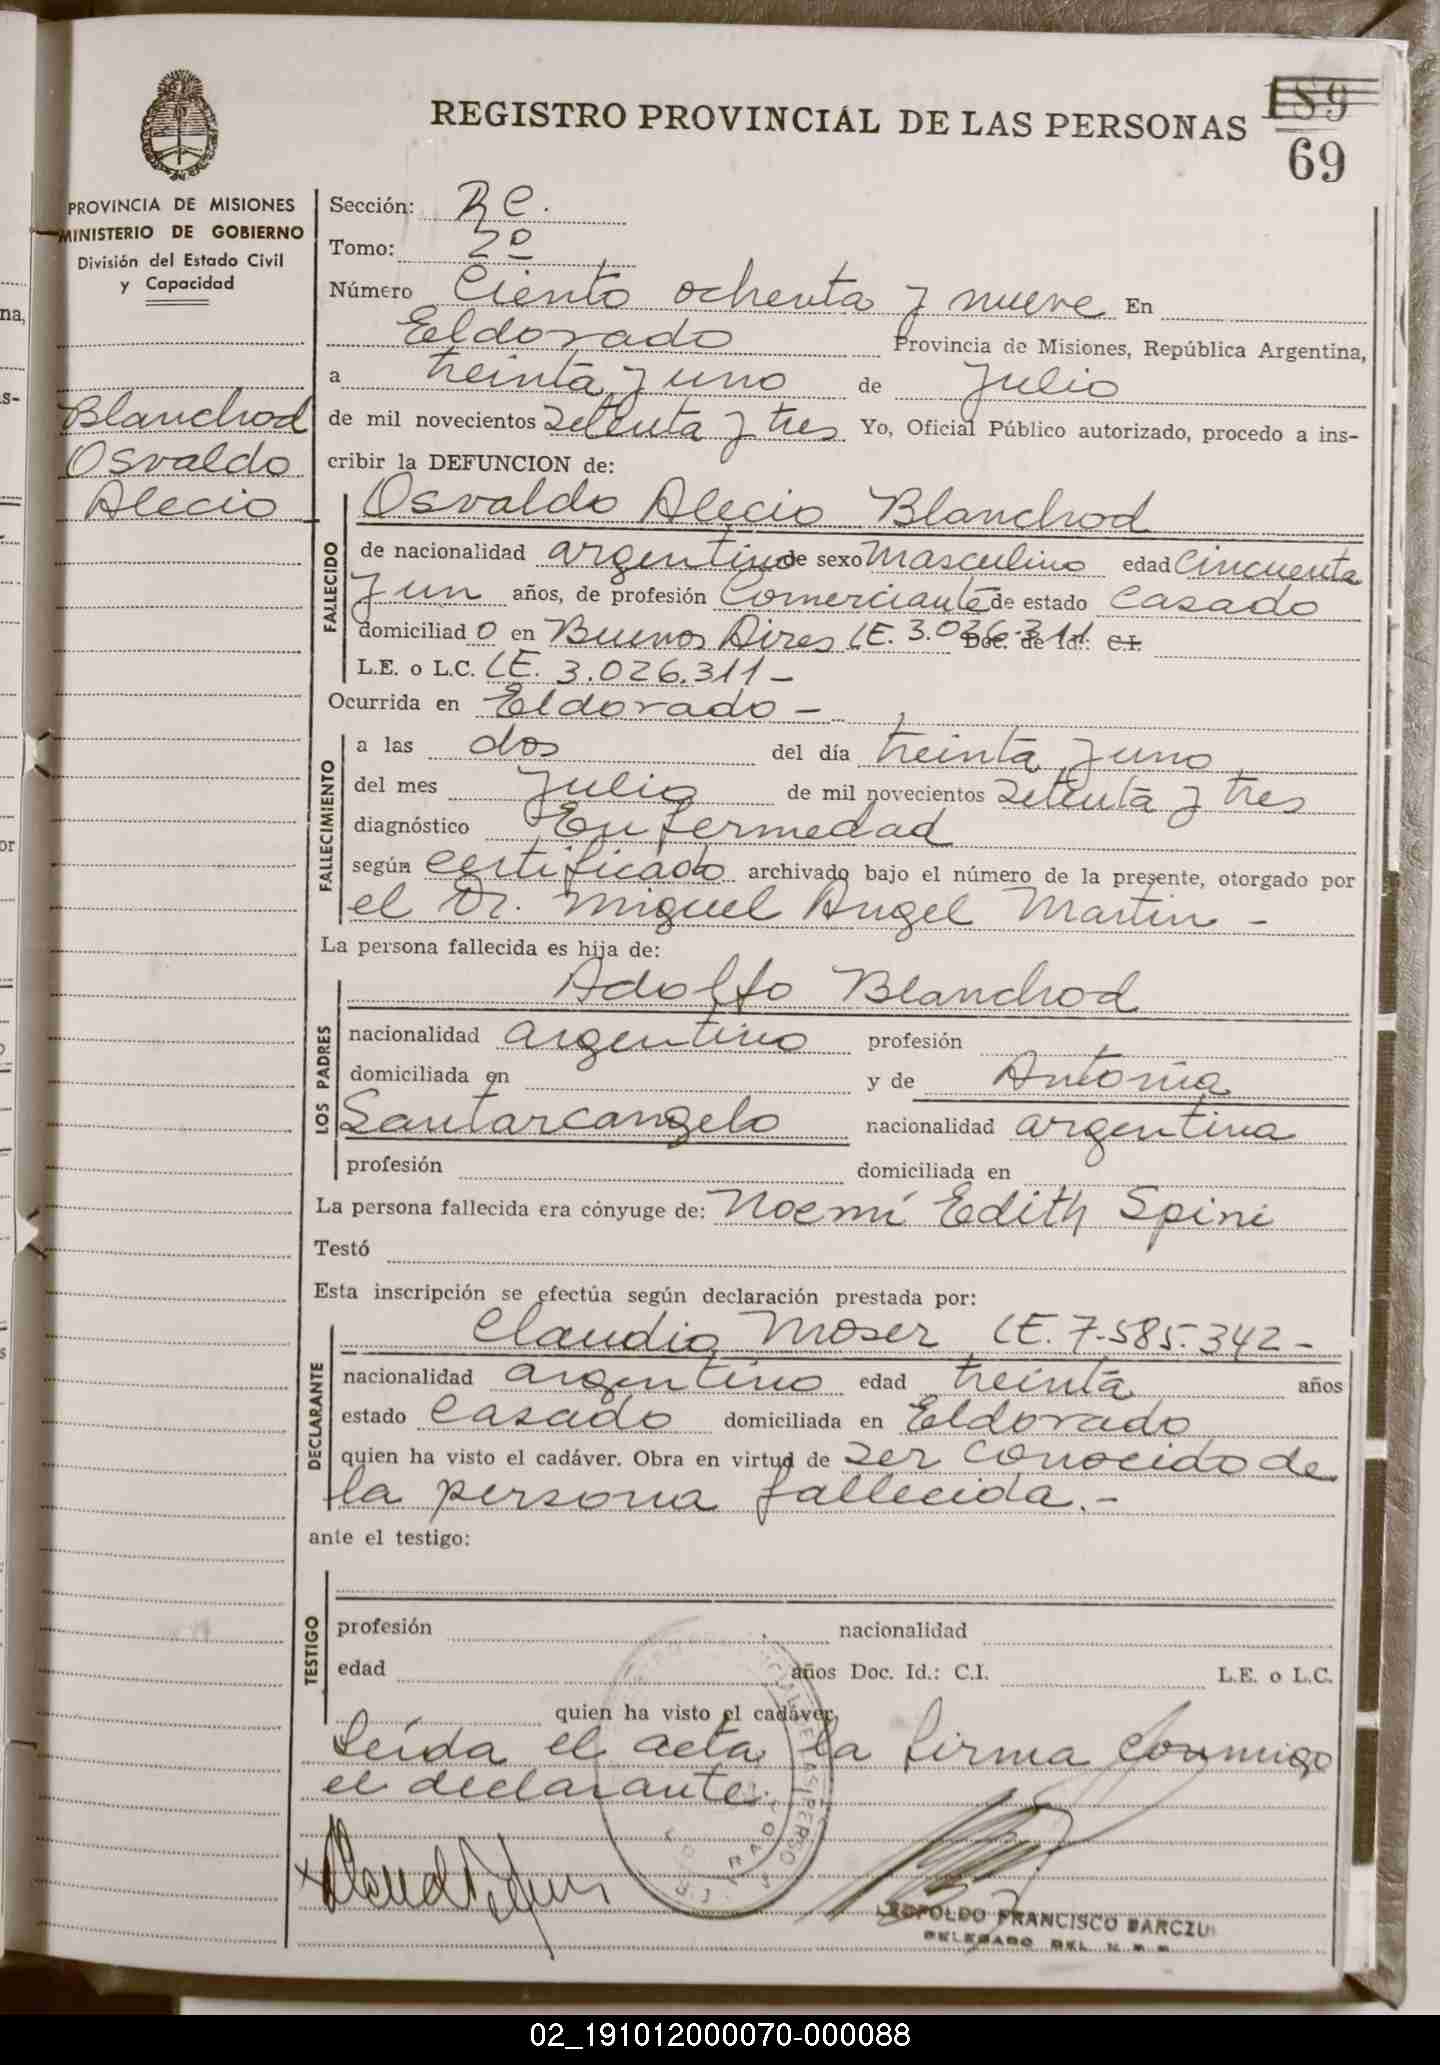 REGISTRO PROVINCIAL DE LAS PERSONAS
189
69
PROVINCIA DE MISIONES
MINISTERIO DE GOBIERNO
División del Estado Civil
y Capacidad
Blanchod
Osvaldo
Alecio
Sección: RC.
Tomo: 2º
Número Ciento ochenta y nueve En
Eldorado Provincia de Misiones, República Argentina,
a treinta y uno de Julio
de mil novecientos setenta y tres Yo, Oficial Público autorizado, procedo a ins-
cribir la DEFUNCION de:
FALLECIDO
Osvaldo Alecio Blanchod
de nacionalidad argentino de sexo Masculino edad Cincuenta
y un años, de profesión Comerciante de estado Casado
domiciliad o en Buenos Aires LE. 3.026.311 Doc. de Id.: C.I.
L.E. o L.C. LE. 3.026.311-
Ocurrida en Eldorado -
FALLECIMIENTO
a las dos del día treinta y uno
del mes Julio de mil novecientos setenta y tres
diagnóstico Enfermedad
según certificado archivado bajo el número de la presente, otorgado por
el Dr. Miguel Angel Martin -
La persona fallecida es hija de:
LOS PADRES
Adolfo Blanchod
nacionalidad argentino profesión
domiciliada en y de Antonia
Santarcangelo nacionalidad argentina
profesión domiciliada en
La persona fallecida era cónyuge de: Noemí Edith Spini
Testó
Esta inscripción se efectúa según declaración prestada por:
DECLARANTE
Claudio Moser LE. 7.585.342-
nacionalidad argentino edad treinta años
estado Casado domiciliada en Eldorado
quien ha visto el cadáver. Obra en virtud de ser conocido de
la persona fallecida.-
ante el testigo:
TESTIGO
profesión nacionalidad
edad años Doc. Id.: C.I. L.E. o L.C.
quien ha visto el cadáver.
Leída el acta, la firma conmigo
el declarante.
LEOPOLDO FRANCISCO BARCZU
DELEGADO DEL
02_191012000070-000088